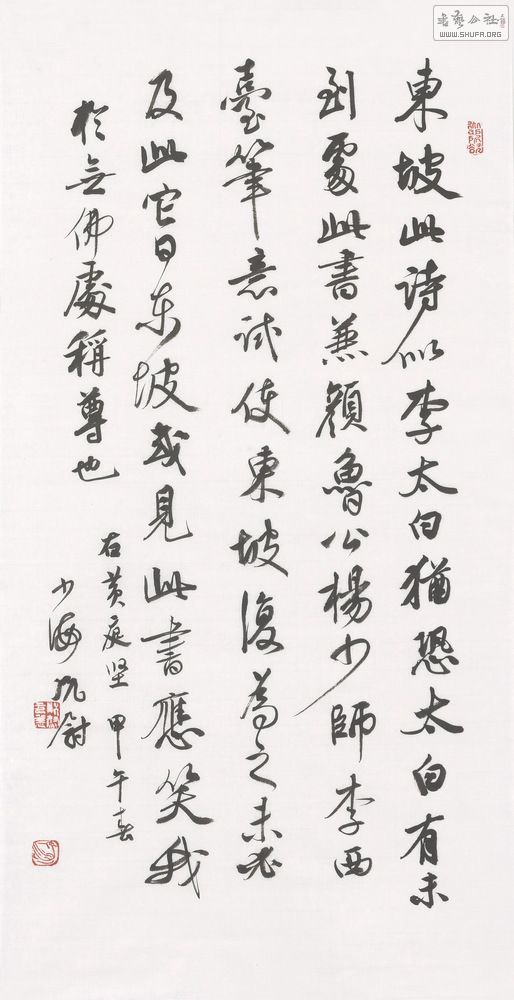 東坡此詩似李太白猶恐太白有未
到處此書兼顔魯公楊少師李西
臺筆意試使東坡復為之未必
及此它日东坡或見此書應笑我
於無佛處稱尊也
右黄庭坚甲午春
少海
WWW.SHUFA.ORG